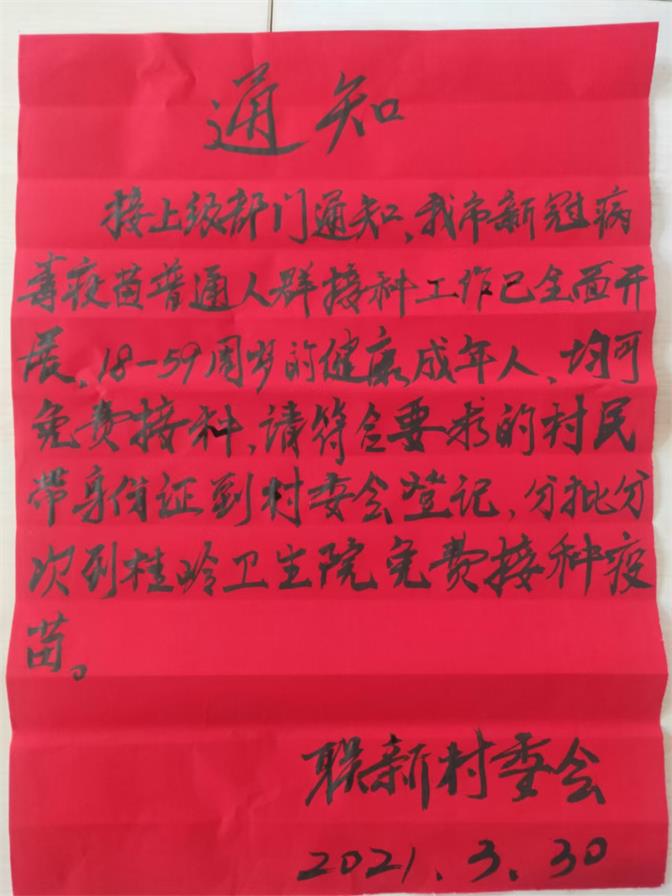 通知
接上级部门通知,我市新冠病
毒疫苗普通人群接种工作已全面开
展,18-59周岁的健康成年人,均可
免费接种,请符合要求的村民
带身份证到村委会登记,分批分
次到桂岭卫生院免费接种疫
苗。
联新村委会
2021.3.30